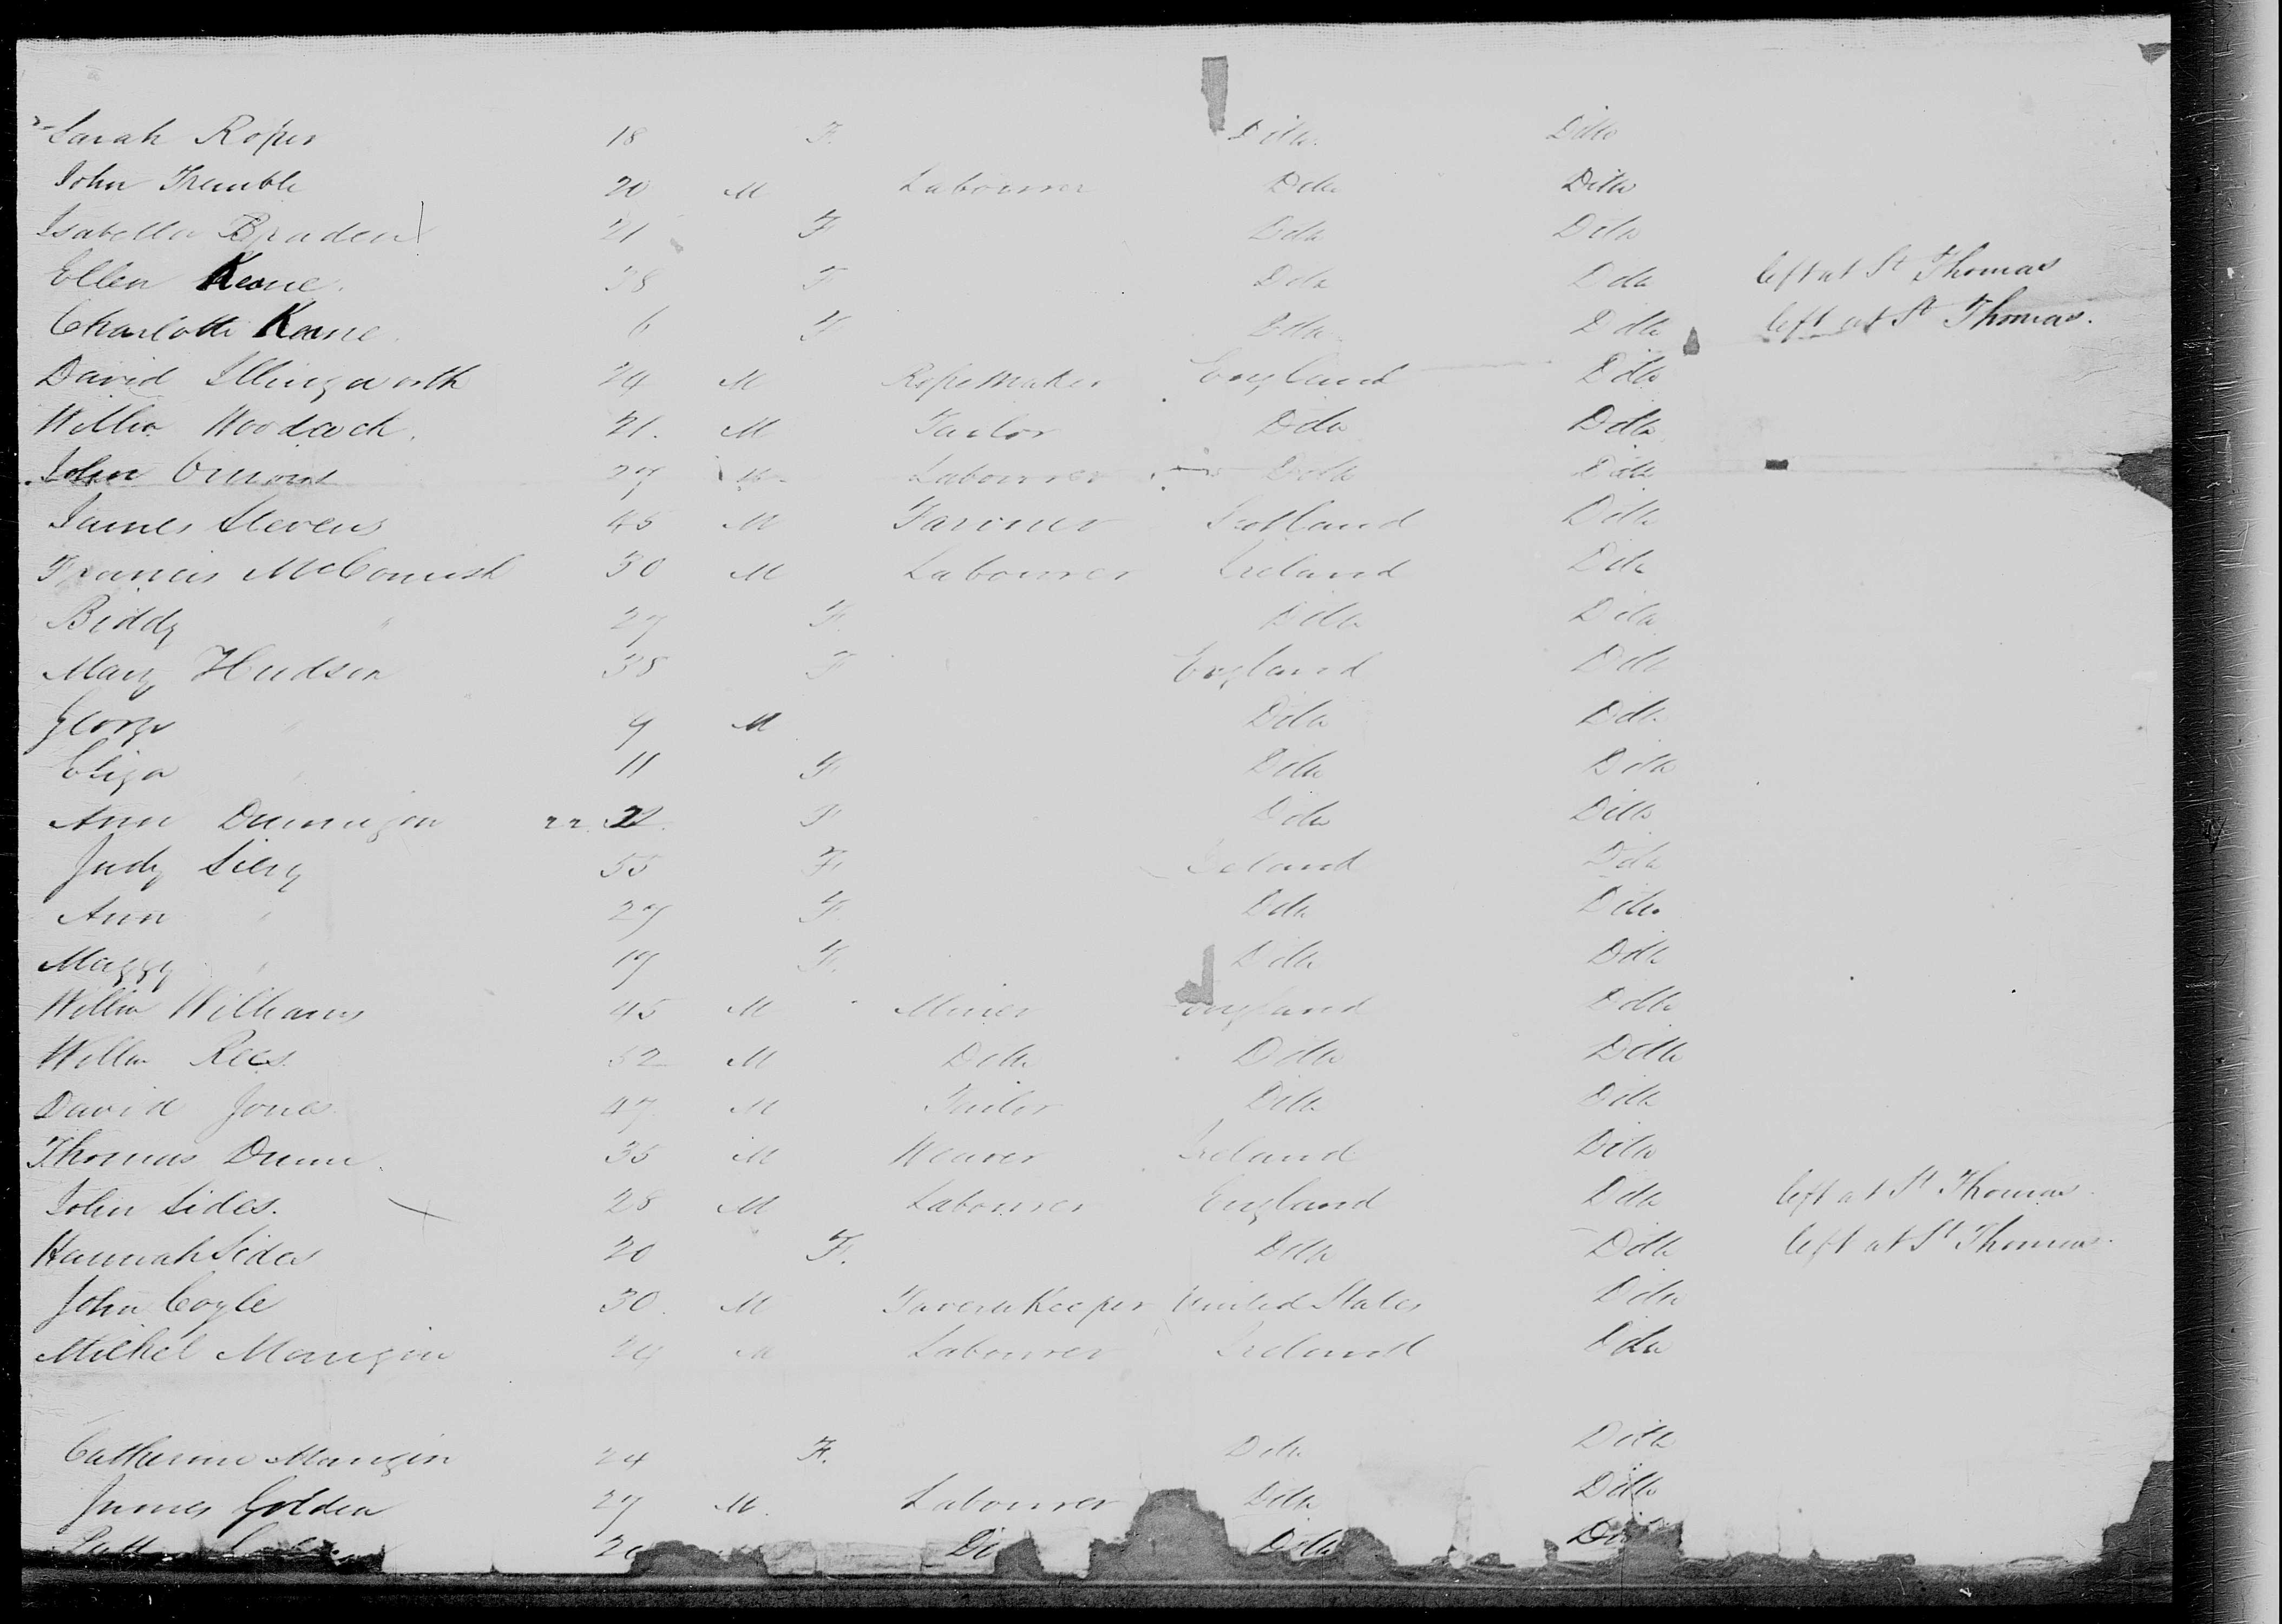 Sarah Roper 18 F. Ditto Ditto
John Tremble 20 M Labourer Ditto Ditto
Isabella Braden 21 F Ditto Ditto
Ellen Keane 38 F Ditto Ditto left at St Thomas
Charlotte Keane 6 F Ditto Ditto left at St Thomas.
David Illingworth 24 M Ropemaker England Ditto
Willm Woodcock. 21. M Tailor Ditto Ditto
John 27 M Labourer Ditto Ditto
James Stevens 45 M Farmer Scotland Ditto
Francis McComish 30 M Labourer Ireland Ditto
Biddy " 27 F. Ditto Ditto
Mary Hudson 38 F England Ditto
George " 9 M Ditto Ditto
Eliza " 11 F Ditto Ditto
Ann Dunnigan 22 F Ditto Ditto
Judy 55 F Ireland Ditto
Ann " 27 F Ditto Ditto
Maggy " 19 F. Ditto Ditto
Willm Williams 45 M Miner England Ditto
Willm Rees 52 M Ditto Ditto Ditto
David Jones 47 M Tailor Ditto Ditto
Thomas Dunn 35 M Weaver Ireland Ditto
John Sides. 28 M Labourer England Ditto left at St Thomas
Hannah Sides 20 F. Ditto Ditto left at St Thomas.
John Coyle 30. M Tavern Keeper United States Ditto
Michel Mangin 29 M Labourer Ireland Ditto
Catherine Mangin 24 F. Ditto Ditto
James Golden 27 M. Labourer Ditto Ditto
Ditto